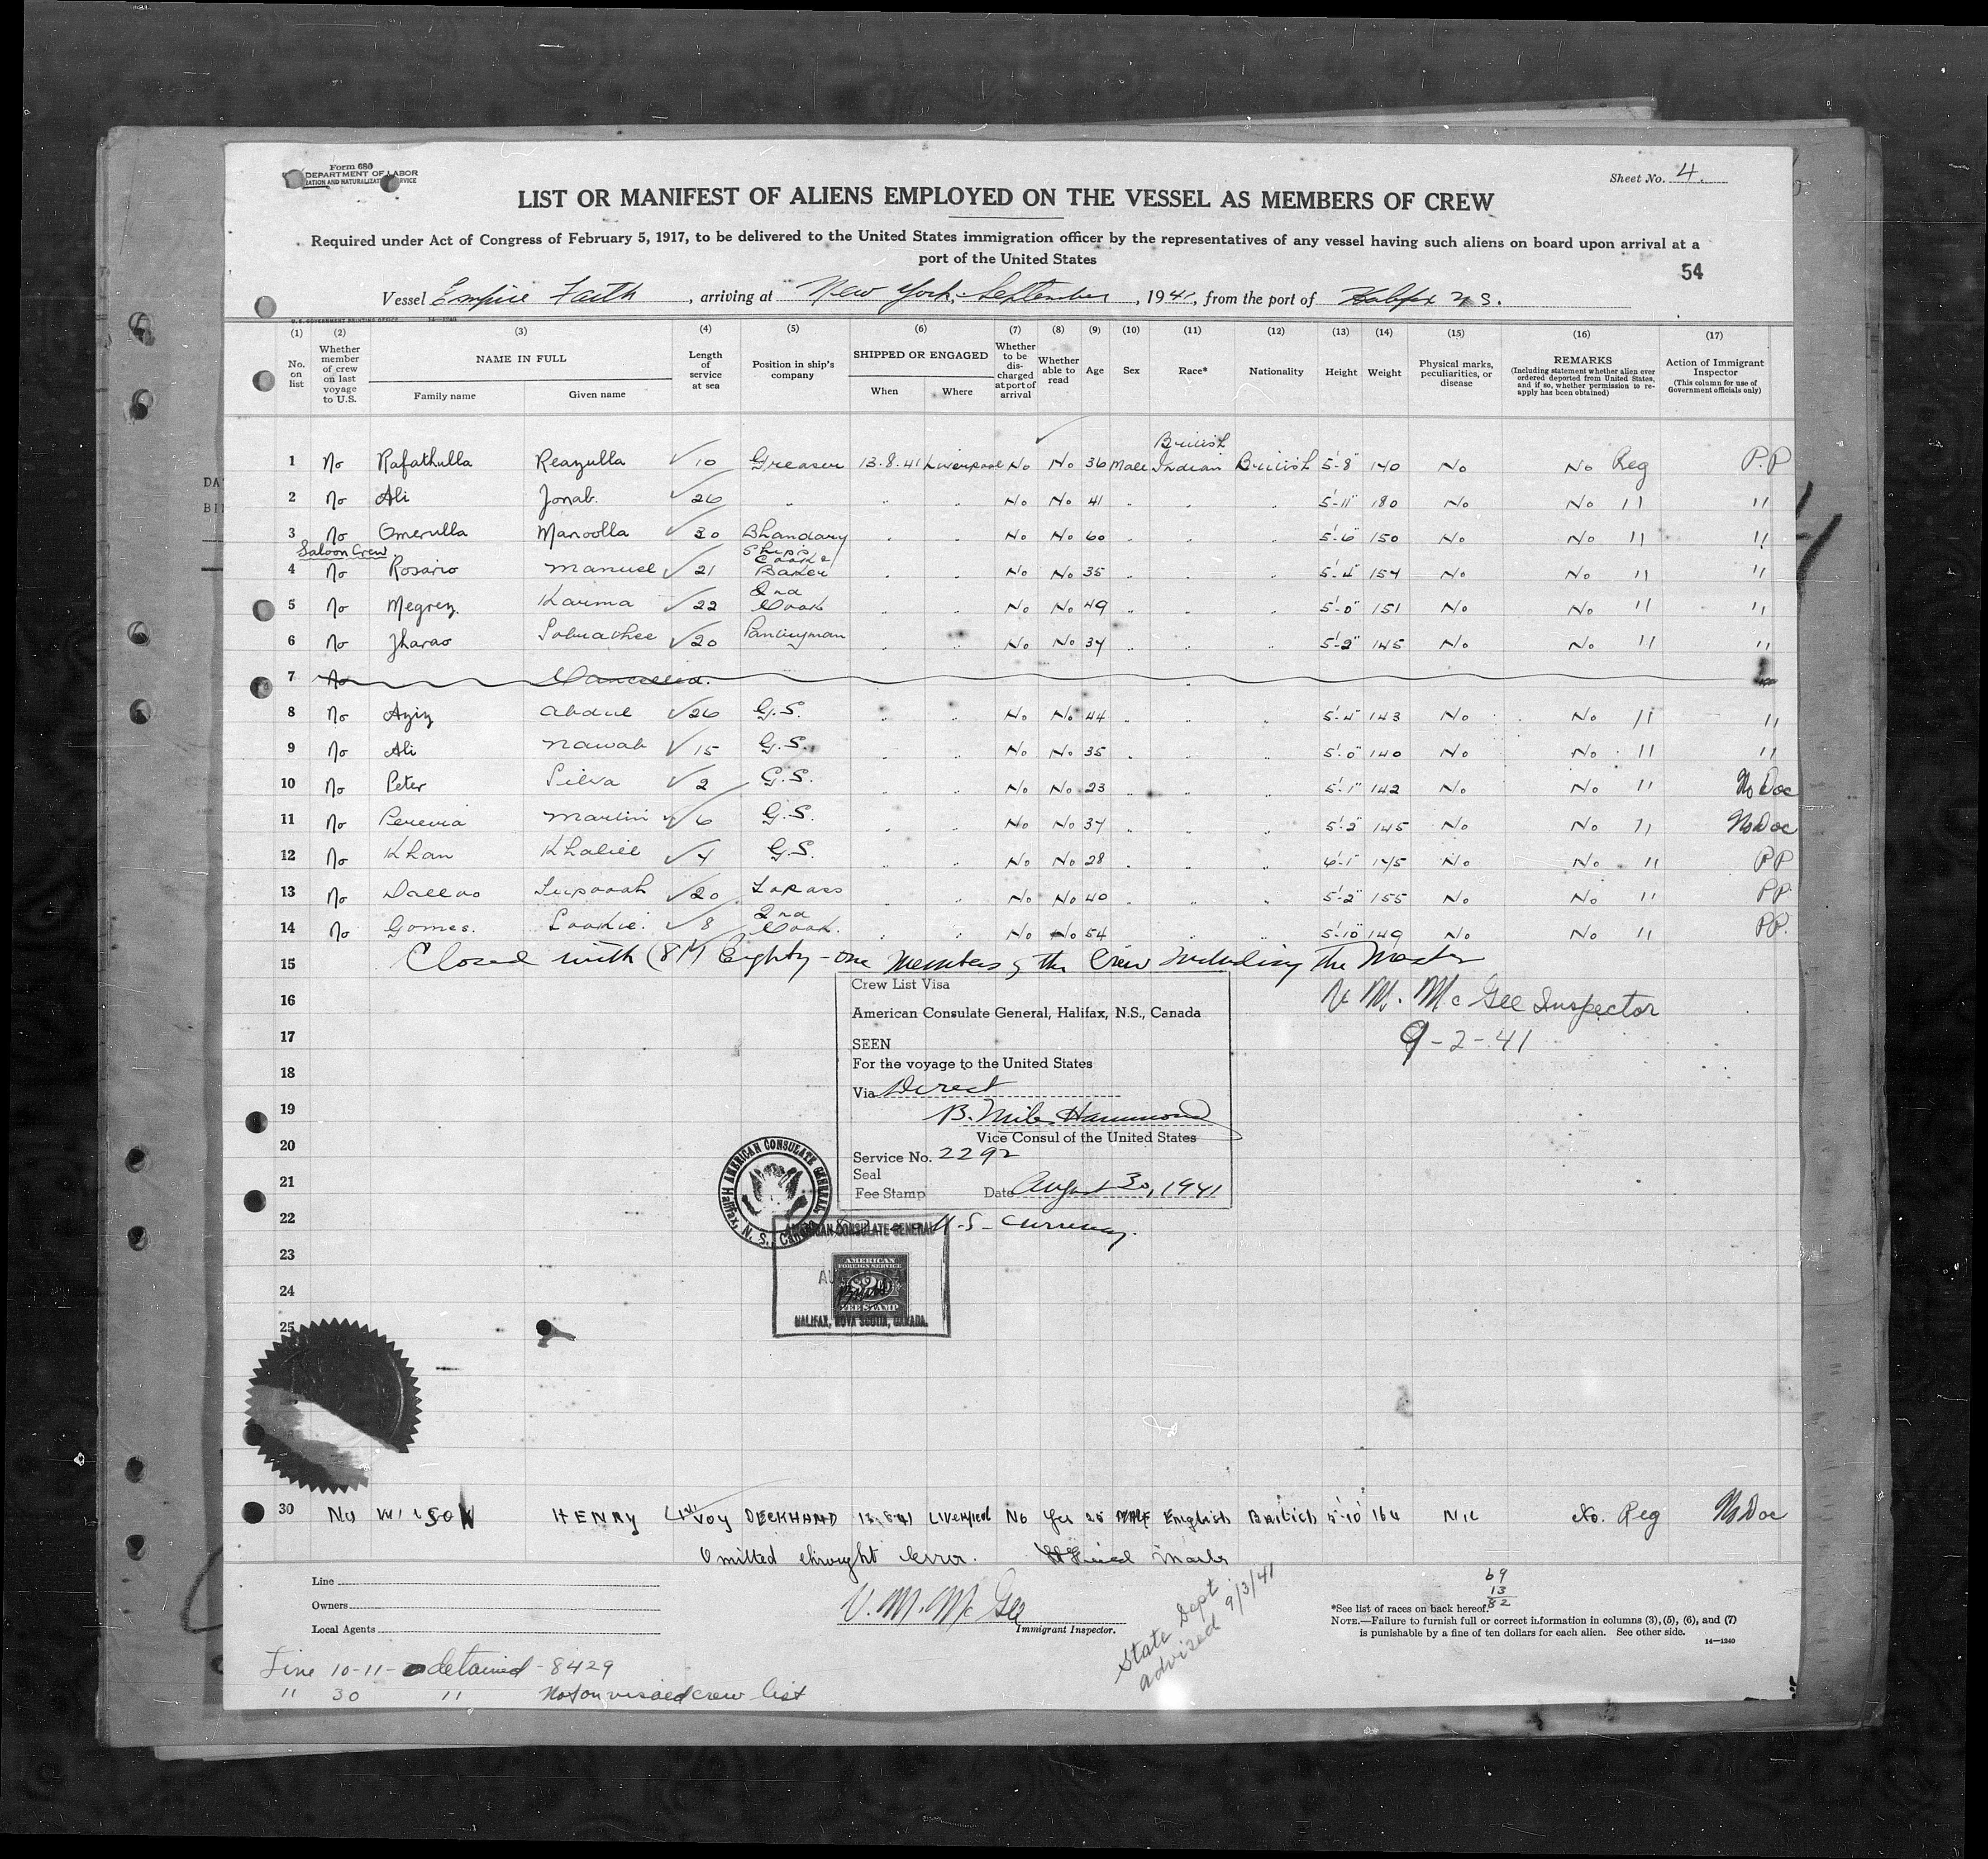 Form 680
DEPARTMENT OF LABOR
Sheet No. 4
LIST OR MANIFEST OF ALIENS EMPLOYED ON THE VESSEL AS MEMBERS OF CREW
Required under Act of Congress of February 5, 1917, to be delivered to the United States immigration officer by the representatives of any vessel having such aliens on board upon arrival at a
port of the United States
54
Vessel Empire Faith, arriving at New York, September, 1941, from the port of Halifax N.S.
U. S. GOVERNMENT PRINTING OFFICE 14—1240
(1) (2) (3) (4) (5) (6) (7) (8) (9) (10) (11) (12) (13) (14) (15) (16) (17)
No. on list
Whether member of crew on last voyage to U.S.
NAME IN FULL
Family name
Given name
Length of service at sea
Position in ship's company
SHIPPED OR ENGAGED
When
Where
Whether to be discharged at port of arrival
Whether able to read
Age
Sex
Race*
Nationality
Height
Weight
Physical marks, peculiarities, or disease
REMARKS
(Including statement whether alien ever ordered deported from United States, and if so, whether permission to reapply has been obtained)
Action of Immigrant Inspector
(This column for use of Government officials only)
1 No Rafathulla Reazulla 10 Greaser 13.8.41 Liverpool No No 36 Male British Indian British 5'-8" 140 No No Reg P.P
2 No Ali Jonab. 26 " " " No No 41 " " " 5'-11" 180 No No " "
3 No Omerulla Manoolla 30 Bhandary " " No No 60 " " " 5'-6" 150 No No " "
Saloon Crew
4 No Rosario Manuel 21 Ship's Cook & Baker " " No No 35 " " " 5'-4" 154 No No " "
5 No Karma 22 2nd Cook " " No No 49 " " " 5'-0" 151 No No " "
6 No Jharao 20 Pantryman " " No No 34 " " " 5'-2" 145 No No " "
7 No Cancelled.
8 No Aziz Abdul 26 G.S. " " No No 44 " " " 5'-4" 143 No No " "
9 No Ali Nawab 15 G.S. " " No No 35 " " " 5'-0" 140 No No " "
10 No Peter Silva 2 G.S. " " No No 23 " " " 5'-1" 142 No No " No Doc
11 No Pereira Martin 6 G.S. " " No No 34 " " " 5'-2" 145 No No " No Doc
12 No Khan Khaliel 4 G.S. " " No No 28 " " " 6'-1" 145 No No " PP
13 No 20 Topass " " No No 40 " " " 5'-2" 155 No No " PP
14 No Gomes. 8 2nd Cook. " " No No 54 " " " 5'-10" 149 No No " PP.
15 Closed with (81) Eighty-one members of the Crew including the Master
16
17
18
19
20
21
22
23
24
25
V. M. McGee Inspector
9-2-41
Crew List Visa
American Consulate General, Halifax, N.S., Canada
SEEN
For the voyage to the United States
Via Direct
Vice Consul of the United States
Service No. 2292
Seal
Fee Stamp
Date August 30, 1941
U.S. Currency.
AMERICAN CONSULATE GENERAL, Halifax, N. S., Canada
AMERICAN CONSULATE GENERAL
AMERICAN
FOREIGN SERVICE
$2
FEE STAMP
HALIFAX, NOVA SCOTIA, CANADA.
30 No WILSON HENRY 1st voy DECKHAND 13.8.41 LIVERPOOL No Yes 25 MALE English British 5'-10" 164 NIL No. Reg No Doc
Omitted throught Error.
Line
Owners
Local Agents
V. M. McGee
Immigrant Inspector.
State Dept
advised 9/3/41
69
13
82
*See list of races on back hereof.
NOTE.—Failure to furnish full or correct information in columns (3), (5), (6), and (7)
is punishable by a fine of ten dollars for each alien. See other side.
14—1240
Line 10-11- detained - 8429
" 30 " Not on visaed crew list